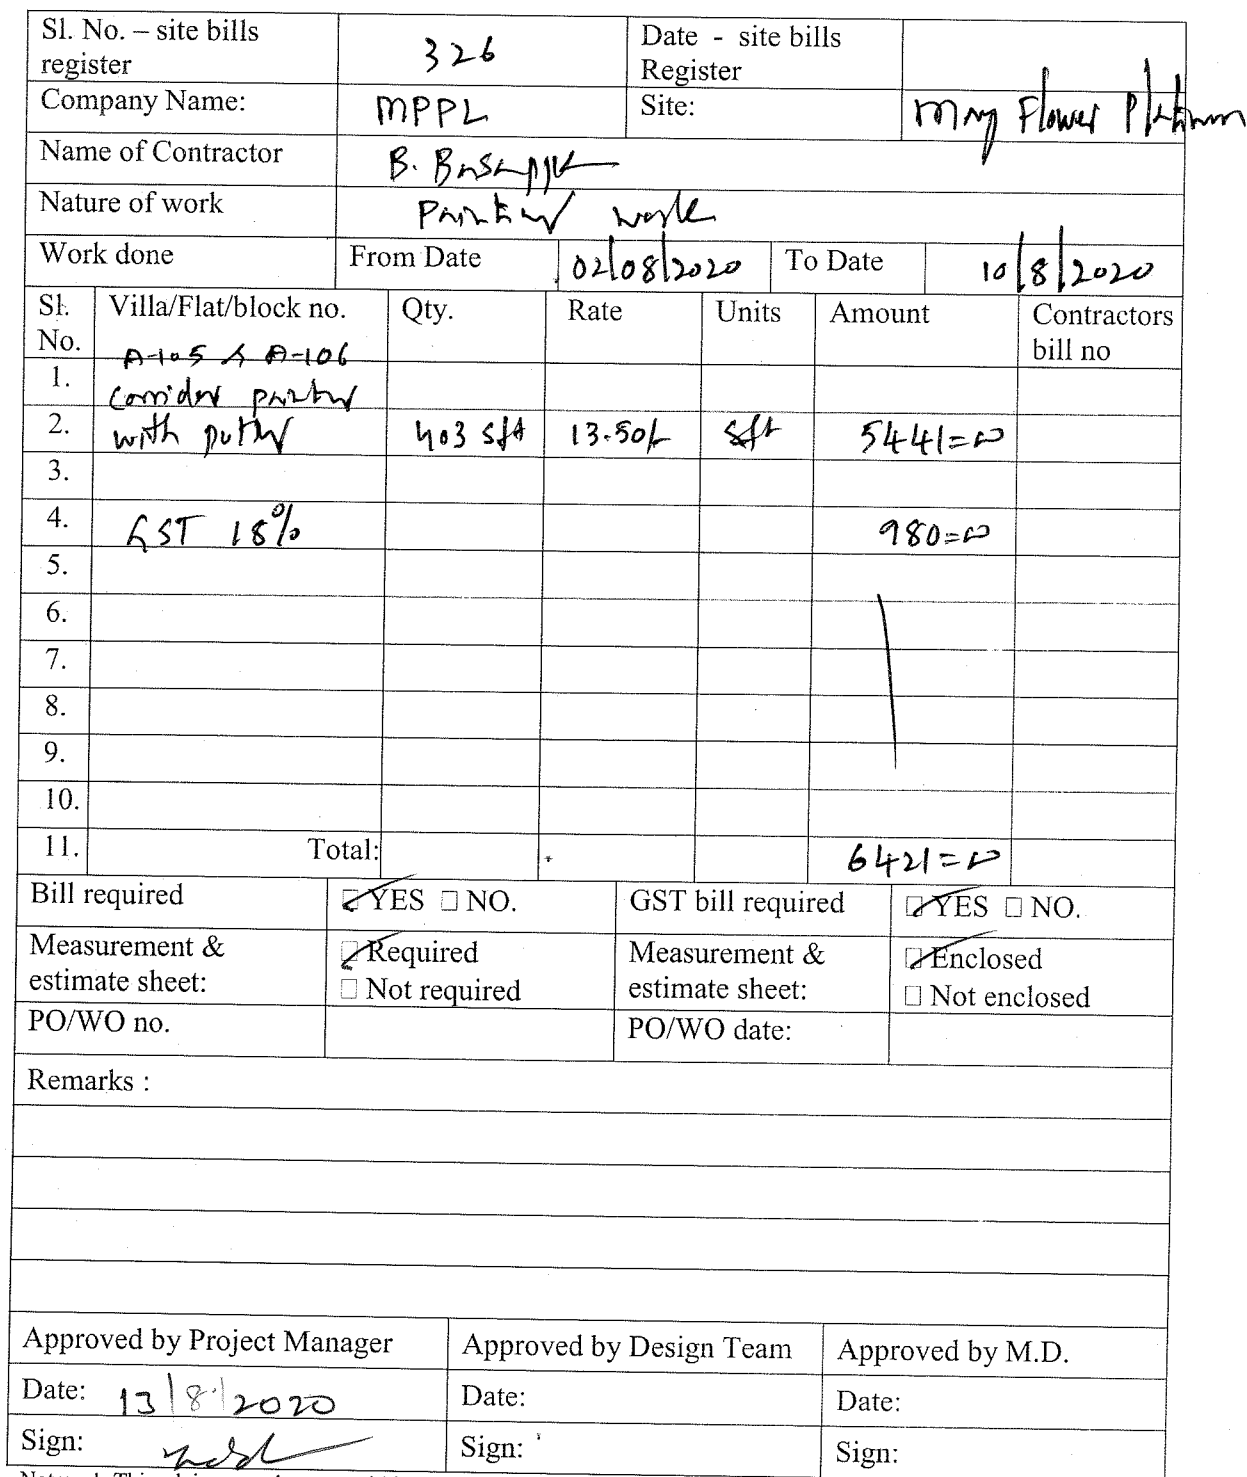 Sl. No. – site bills register 326 Date - site bills Register
Company Name: MPPL Site: May Flower Platinum
Name of Contractor B. Basappa
Nature of work Painting work
Work done From Date 02/08/2020 To Date 10/8/2020
Sl. No. Villa/Flat/block no. Qty. Rate Units Amount Contractors bill no
A-105 & A-106
1. Corridor painting
2. with putty 403 sft 13.50/- sft 5441=00
3.
4. GST 18% 980=00
5.
6.
7.
8.
9.
10.
11. Total: 6421=00
Bill required ☑ YES ☐ NO. GST bill required ☑ YES ☐ NO.
Measurement & estimate sheet: ☑ Required ☐ Not required Measurement & estimate sheet: ☑ Enclosed ☐ Not enclosed
PO/WO no. PO/WO date:
Remarks :
Approved by Project Manager Approved by Design Team Approved by M.D.
Date: 13/8/2020 Date: Date:
Sign: Sign: Sign: